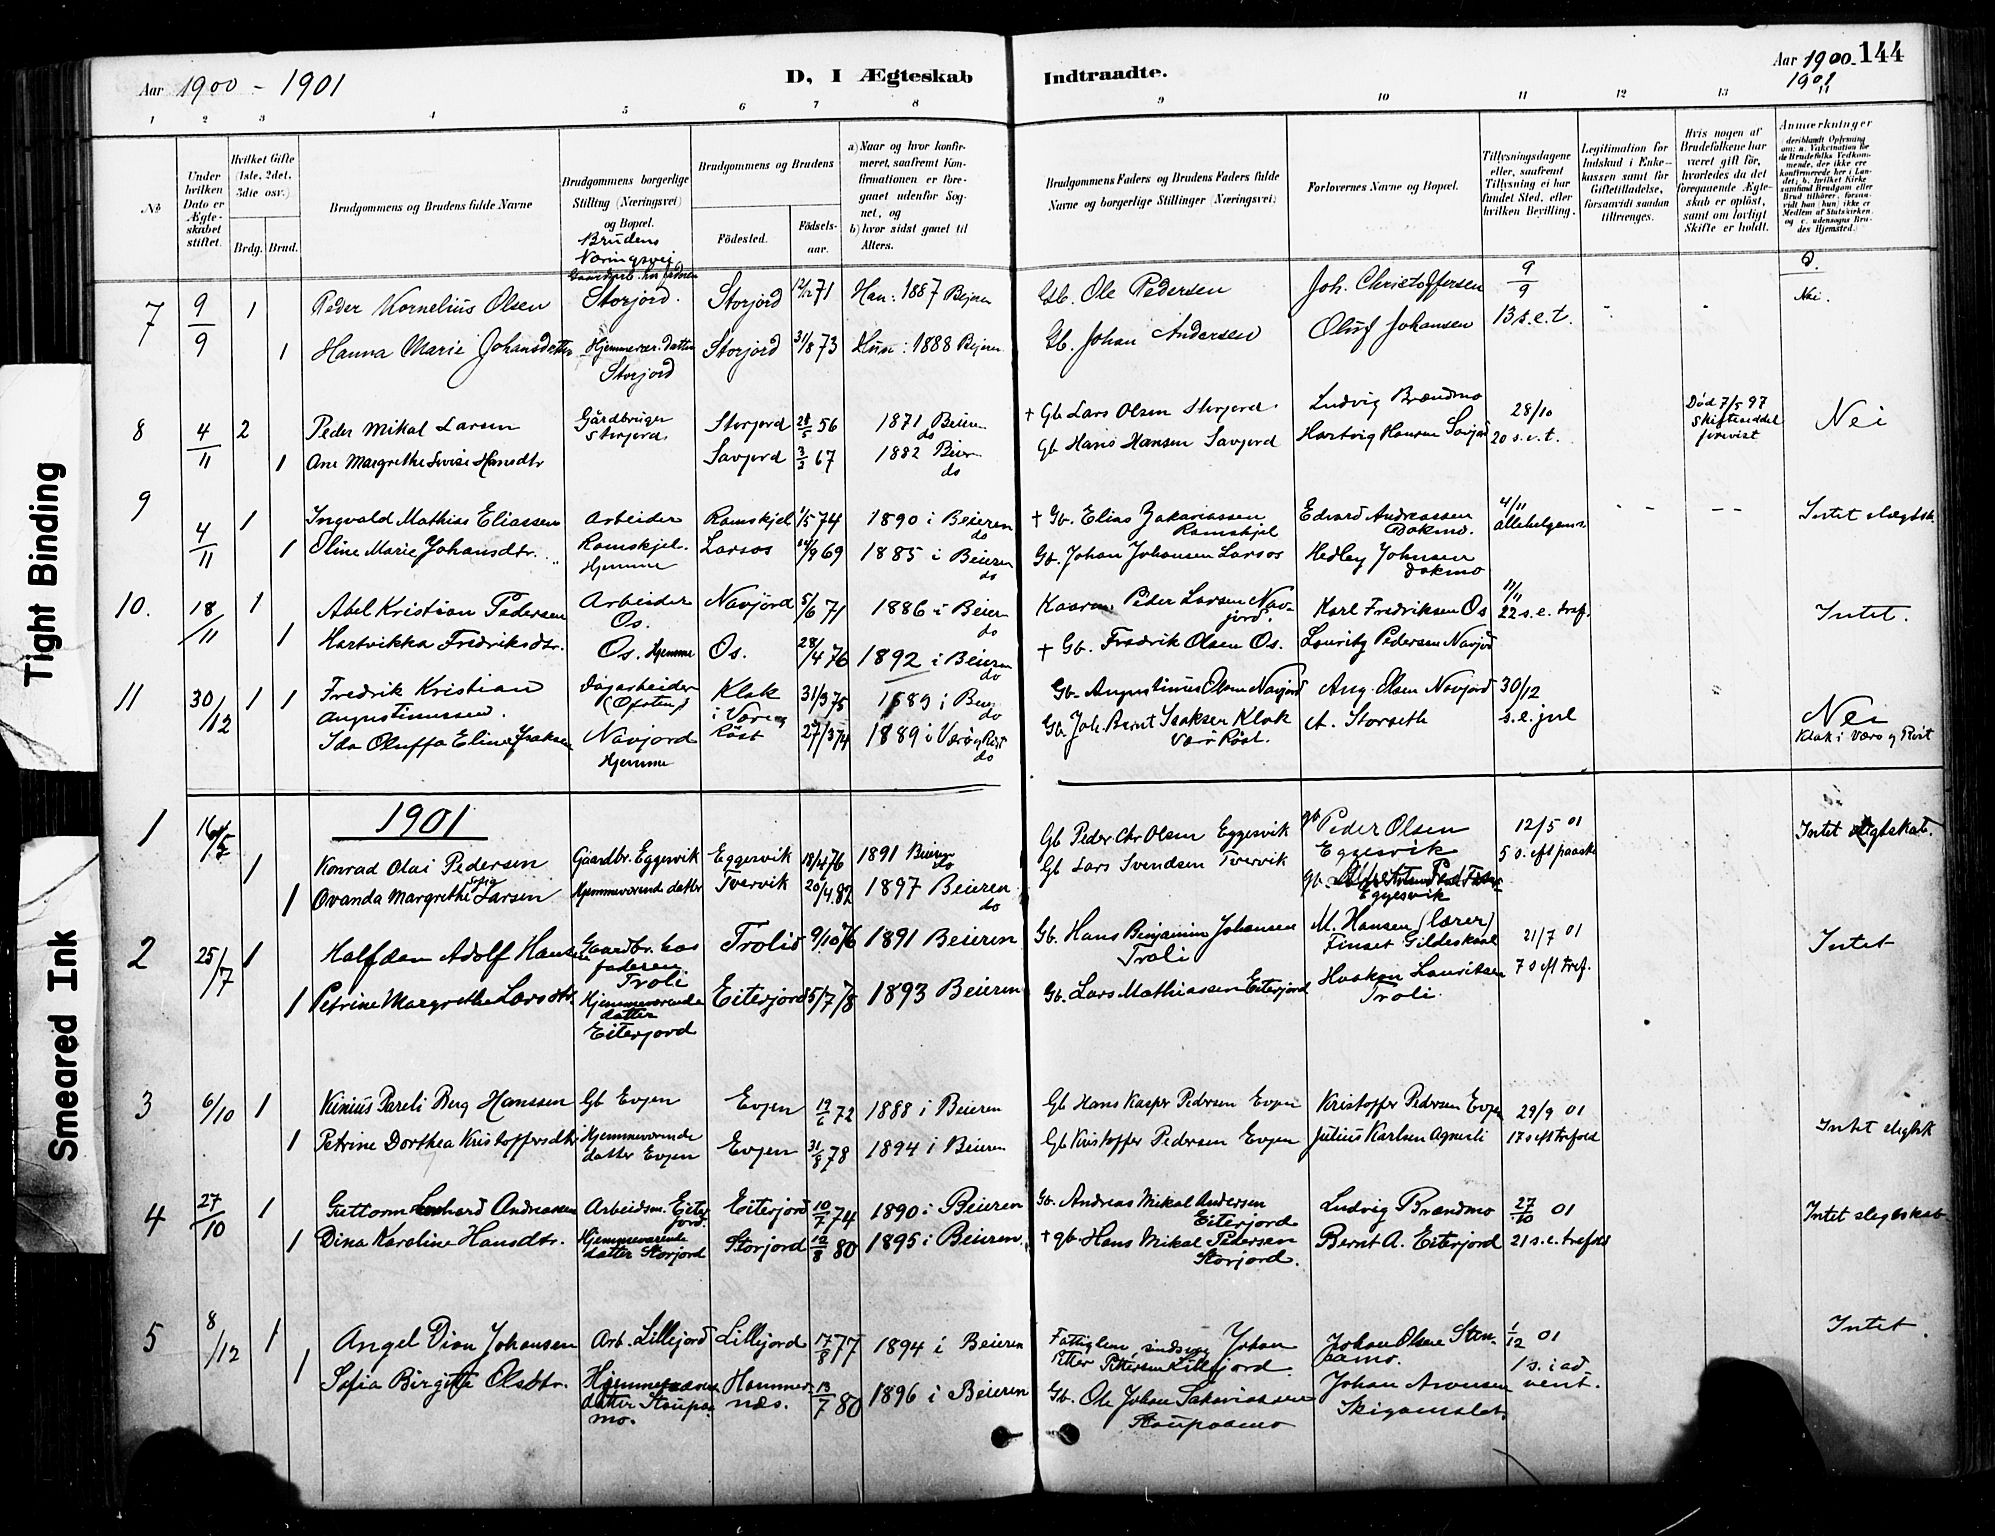 Aar 1900 - 1901
D, I Ægteskab
Indtraadte.
Aar 1900-
1901
144
1 2 3 4 5 6 7 8 9 10 11 12 13
No
Under hvilken Dato er Ægteskabet stiftet.
Hvilket Gifte (1ste, 2det, 3die osv.)
Brdg. Brud.
Brudgommens og Brudens fulde Navne
Brudgommens borgerlige Stilling (Næringsvei) og Bopæl.
Brudens Næringsvei
Brudgommens og Brudens
Födested.
Födselsaar.
a) Naar og hvor konfirmeret, saafremt Konfirmationen er foregaaet udenfor Sognet, og
b) hvor sidst gaaet til Alters.
Brudgommens Faders og Brudens Faders fulde Navne og borgerlige Stillinger (Næringsvei)
Forlovernes Navne og Bopæl.
Tillysningsdagene eller, saafremt Tillysning ei har fundet Sted, efter hvilken Bevilling.
Legitimation for Indskud i Enkekassen samt for Giftetilladelse, forsaavidt saadan tiltrænges.
Hvis nogen af Brudefolkene har været gift för, hvorledes da det foregaaende Ægteskab er oplöst, samt om lovligt Skifte er holdt.
Anmærkninger
7 9/9 1 Peder Kornelius Olsen Storjord. Storjord 12/12 71 Han: 1887 Bejren Gb. Ole Pedersen Joh. Christoffersen 9/9 Nei.
1 Hanna Marie Johansdatter Hjemmevær. datter Storjord Storjord 31/8 73 Hun: 1888 Bejren Gb. Johan Andersen Oluf Johansen 13 s.e.t.
8 4/11 2 Peder Mikal Larsen Gårdbruger Storjord Storjord 28/5 56 1871 Beieren do + Gb Lars Olsen Storjord Ludvig Brændmo 28/10 Död 7/5 97 Skifteseddel forevist Nei
1 Ane Margrethe Lovise Hansdtr Savjord 3/3 67 1882 Beieren do Gb Hans Hansen Savjord Hartvig Hansen Savjord 20 s.e.t.
9 4/11 1 Ingvald Mathias Eliassen Arbeider Ramskjel. Ramskjel 1/5 74 1890 i Beieren do + Gb. Elias Zakariassen Ramskjel Edvard Andreassen Dokmo. 4/11 allehelgens - - - Intet slægtsk.
1 Oline Marie Johansdtr. Hjemme Larsos 69 1885 i Beieren do Gb. Johan Johansen Larsos Hedley Johnsen Dokmo
10. 18/11 1 Abel Kristian Pedersen Arbeider Os. Navjord 5/6 71 1886 i Beier do Kaarm. Peder Larsen Navjord. Karl Fredriksen Os 11/11 22 s.e. tref. Intet.
1 Hartvikka Fredriksdtr. Os. Hjemme Os. 28/4 76 1892 i Beieren do + Gb. Fredrik Olsen Os. Lauritz Pedersen Navjord
11 30/12 1 1 Fredrik Kristian Augustinussen. Dagarbeider (Ofoten) Klak i Værøy 31/3 75 1889 i Bei do Gb. Augustinus Olsen Navjord Aug. Olsen Navjord 30/12 Nei
Ida Oluffa Eline Isaksen Navjord Hjemme Röst 27/3 74 1889 i Værö og Röst do Gb. Joh. Bernt Isaksen Klak Værö Röst. A. Storseth s.e. jul Klak i Værö og Röst
1901
1 16/5 1 Konrad Olai Pedersen Gaardbr. Eggesvik Eggesvik 18/4 76 1891 Beieren do Gb Peder Chr Olsen Eggesvik gb Peder Olsen Eggesvik 12/5 01 Intet slegtskab.
1 Ovanda Margrethe Sofie Larsen Hjemmeværende datter Tvervik 20/4.82 1897 Beieren do Gb Lars Svendsen Tvervik Gb. Eggesvik 5 s. eft paaske
2 25/7 1 Halfdan Adolf Hansen Gaardbr. hos faderen Troli Troli 9/10 76 1891 Beieren Gb. Hans Benjamin Johansen Troli M. Hansen (lærer) Finset Gildeskaal 21/7 01 Intet
1 Petrine Margrethe Larsdtr. Hjemmeværende datter Eiterjord Eiterjord 5/7 78 1893 Beieren Gb. Lars Mathiassen Eiterjord Haakon Lauritsen Troli. 7 s eft tref.
3 6/10 1 Kinius Pareli Berg Hanssen Gb Evjen Evjen 19/6 72 1888 i Beieren Gb Hans Kasper Pedersen Evjen Kristoffer Pedersen Evjen 29/9 01 Intet slegtsk
1 Petrine Dorthea Kristoffersdtr Hjemmeværende datter Evjen Evjen 31/8 78 1894 i Beieren Gb Kristoffer Pedersen Evjen Julius Karlsen Agneli 17 s eft trefold
4 27/10 1 Guttorm Lenhard Andreassen Arbeidsm. Eiterjord. Eiterjord 10/7 74 1890 i Beieren Gb. Andreas Mikal Andersen Eiterjord Ludvig Brændmo 27/10 01 Intet slegtskab
1 Dina Karoline Hansdtr. Hjemmeværende datter Storjord Storjord 12/8 80 1895 i Beieren. + gb. Hans Mikal Pedersen Storjord. Bernt A. Eiterjord 21 s.e. trefold
5 8/12 1 Angel Dion Johansen Arb. Lillejord Lillejord 17/8 77 1894 i Beieren Fattiglem, sindssyg Johan Petter Pettersen Lillejord. Johan Olsen Stenaamo. 1/12 01 Intet.
1 Sofia Birgitte Olsdtr. Hjemmeværende datter Staupaamo. Hammernæs. 13/7 80 1896 i Beieren Gb. Ole Johan Sakariassen Staupaamo Johan Aronsen 1 s. i advent.
Tight Binding
Smeared Ink